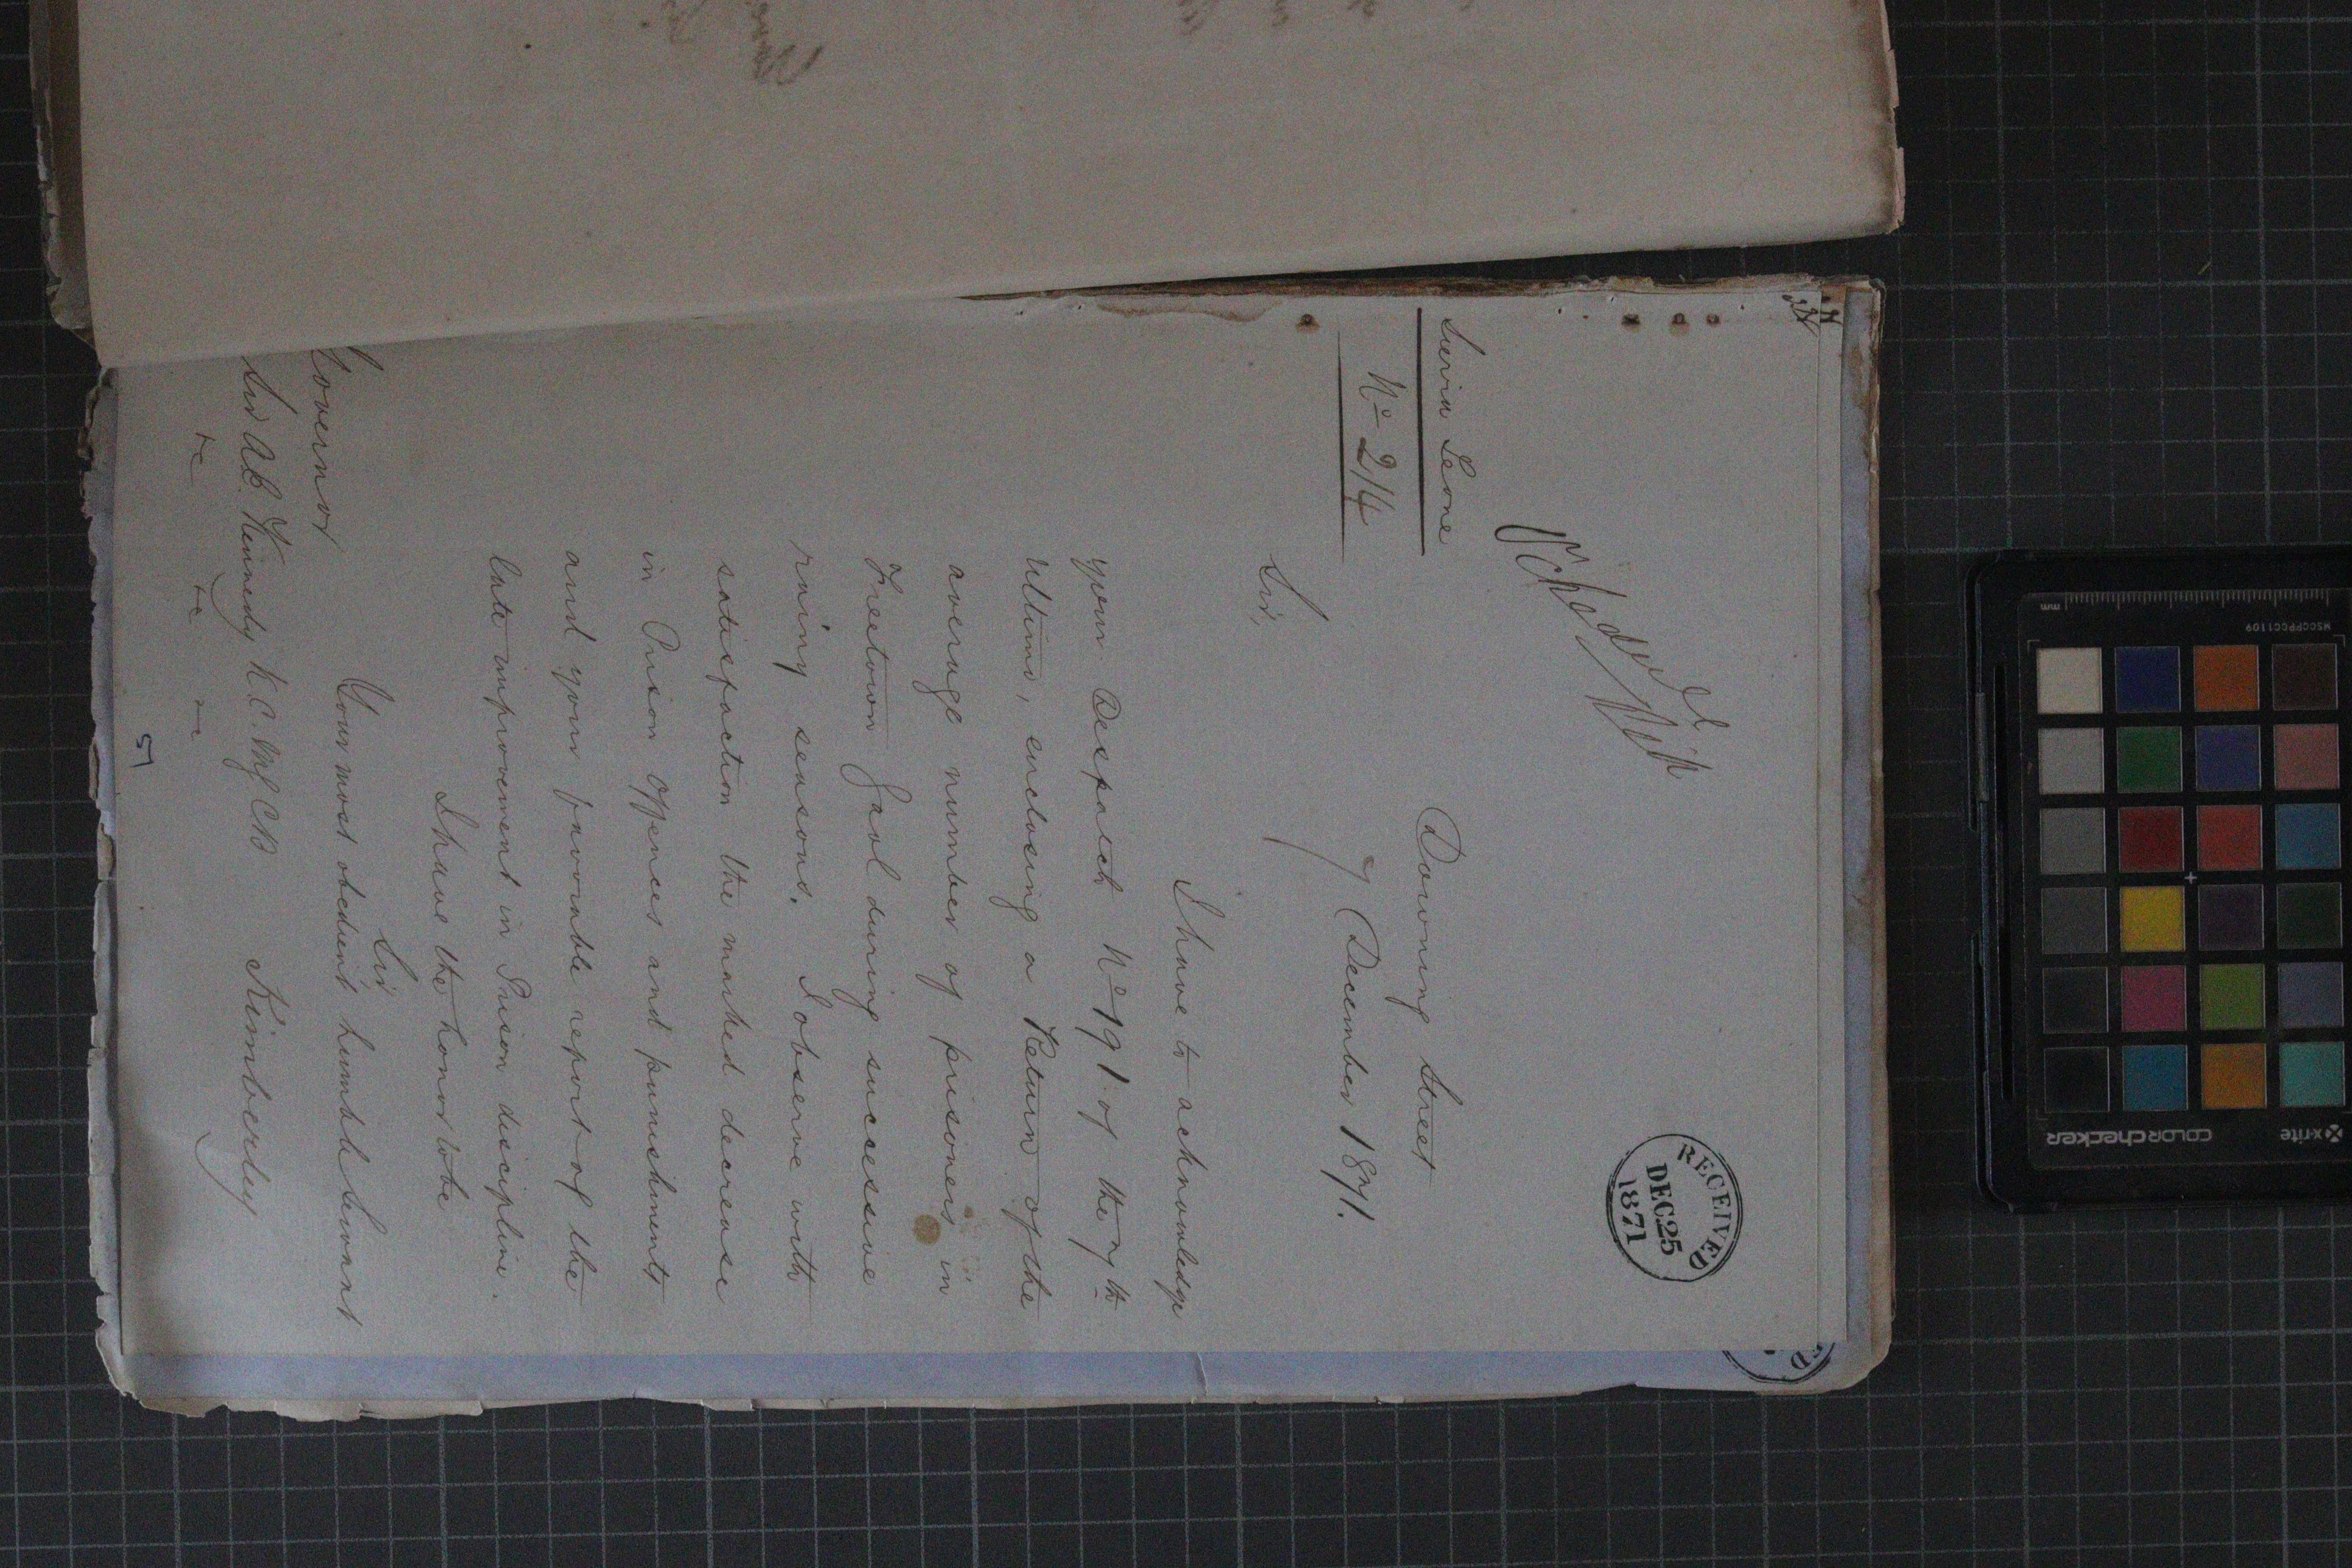 RECEIVED
DEC 25
1871
Sierra Leone
No 214
Downing Street
7 December 1871.
Sir,
I have to acknowledge
your Despatch No 191 of the 7th
Ultimo, enclosing a Return of the
average number of prisoners in
Freetown Gaol during successive
rainy seasons. I observe with
satisfaction the marked decrease
in Prison offences and punishments
and your favorable report of the
late improvement in Prison discipline.
I have the honor to be
Sir,
Your most obedient humble Servant
Kimberley
Governor
Sir A.E. Kennedy K.C.M.G. C.B
&c &c &c
51